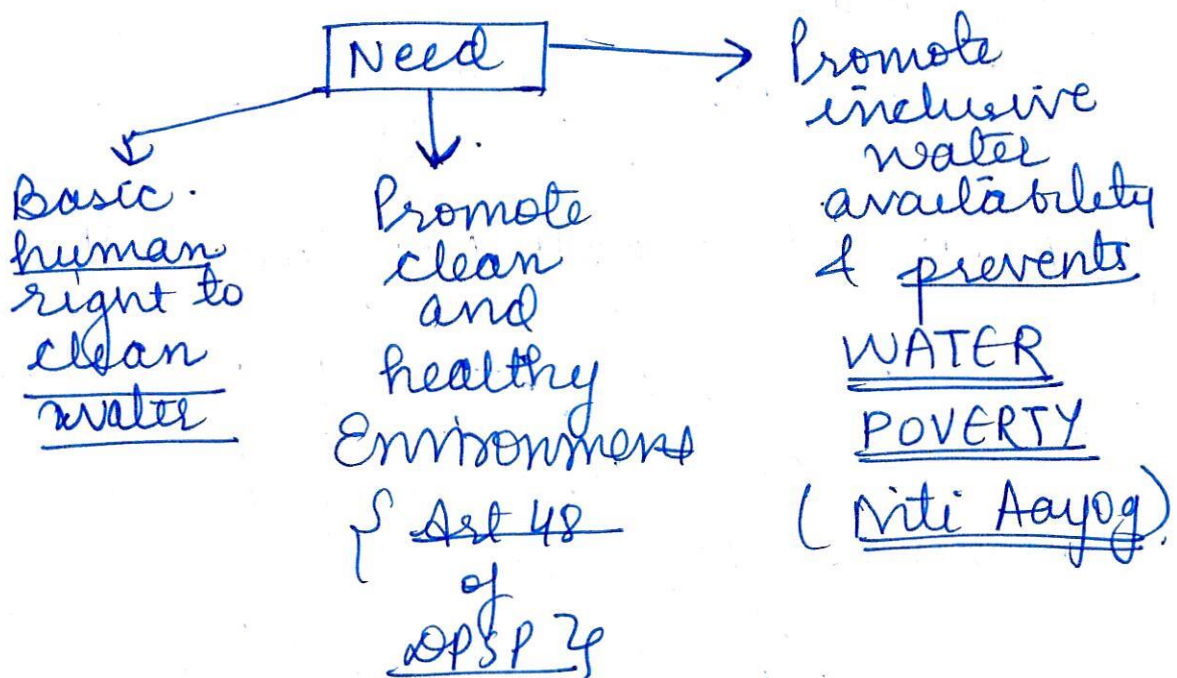 Need
Basic.
human
right to
clean
water
Promote
clean
and
healthy
Environment
{ Art 48
of
DPSP }
Promote
inclusive
water
availability
& prevents
WATER
POVERTY
(Niti Aayog).